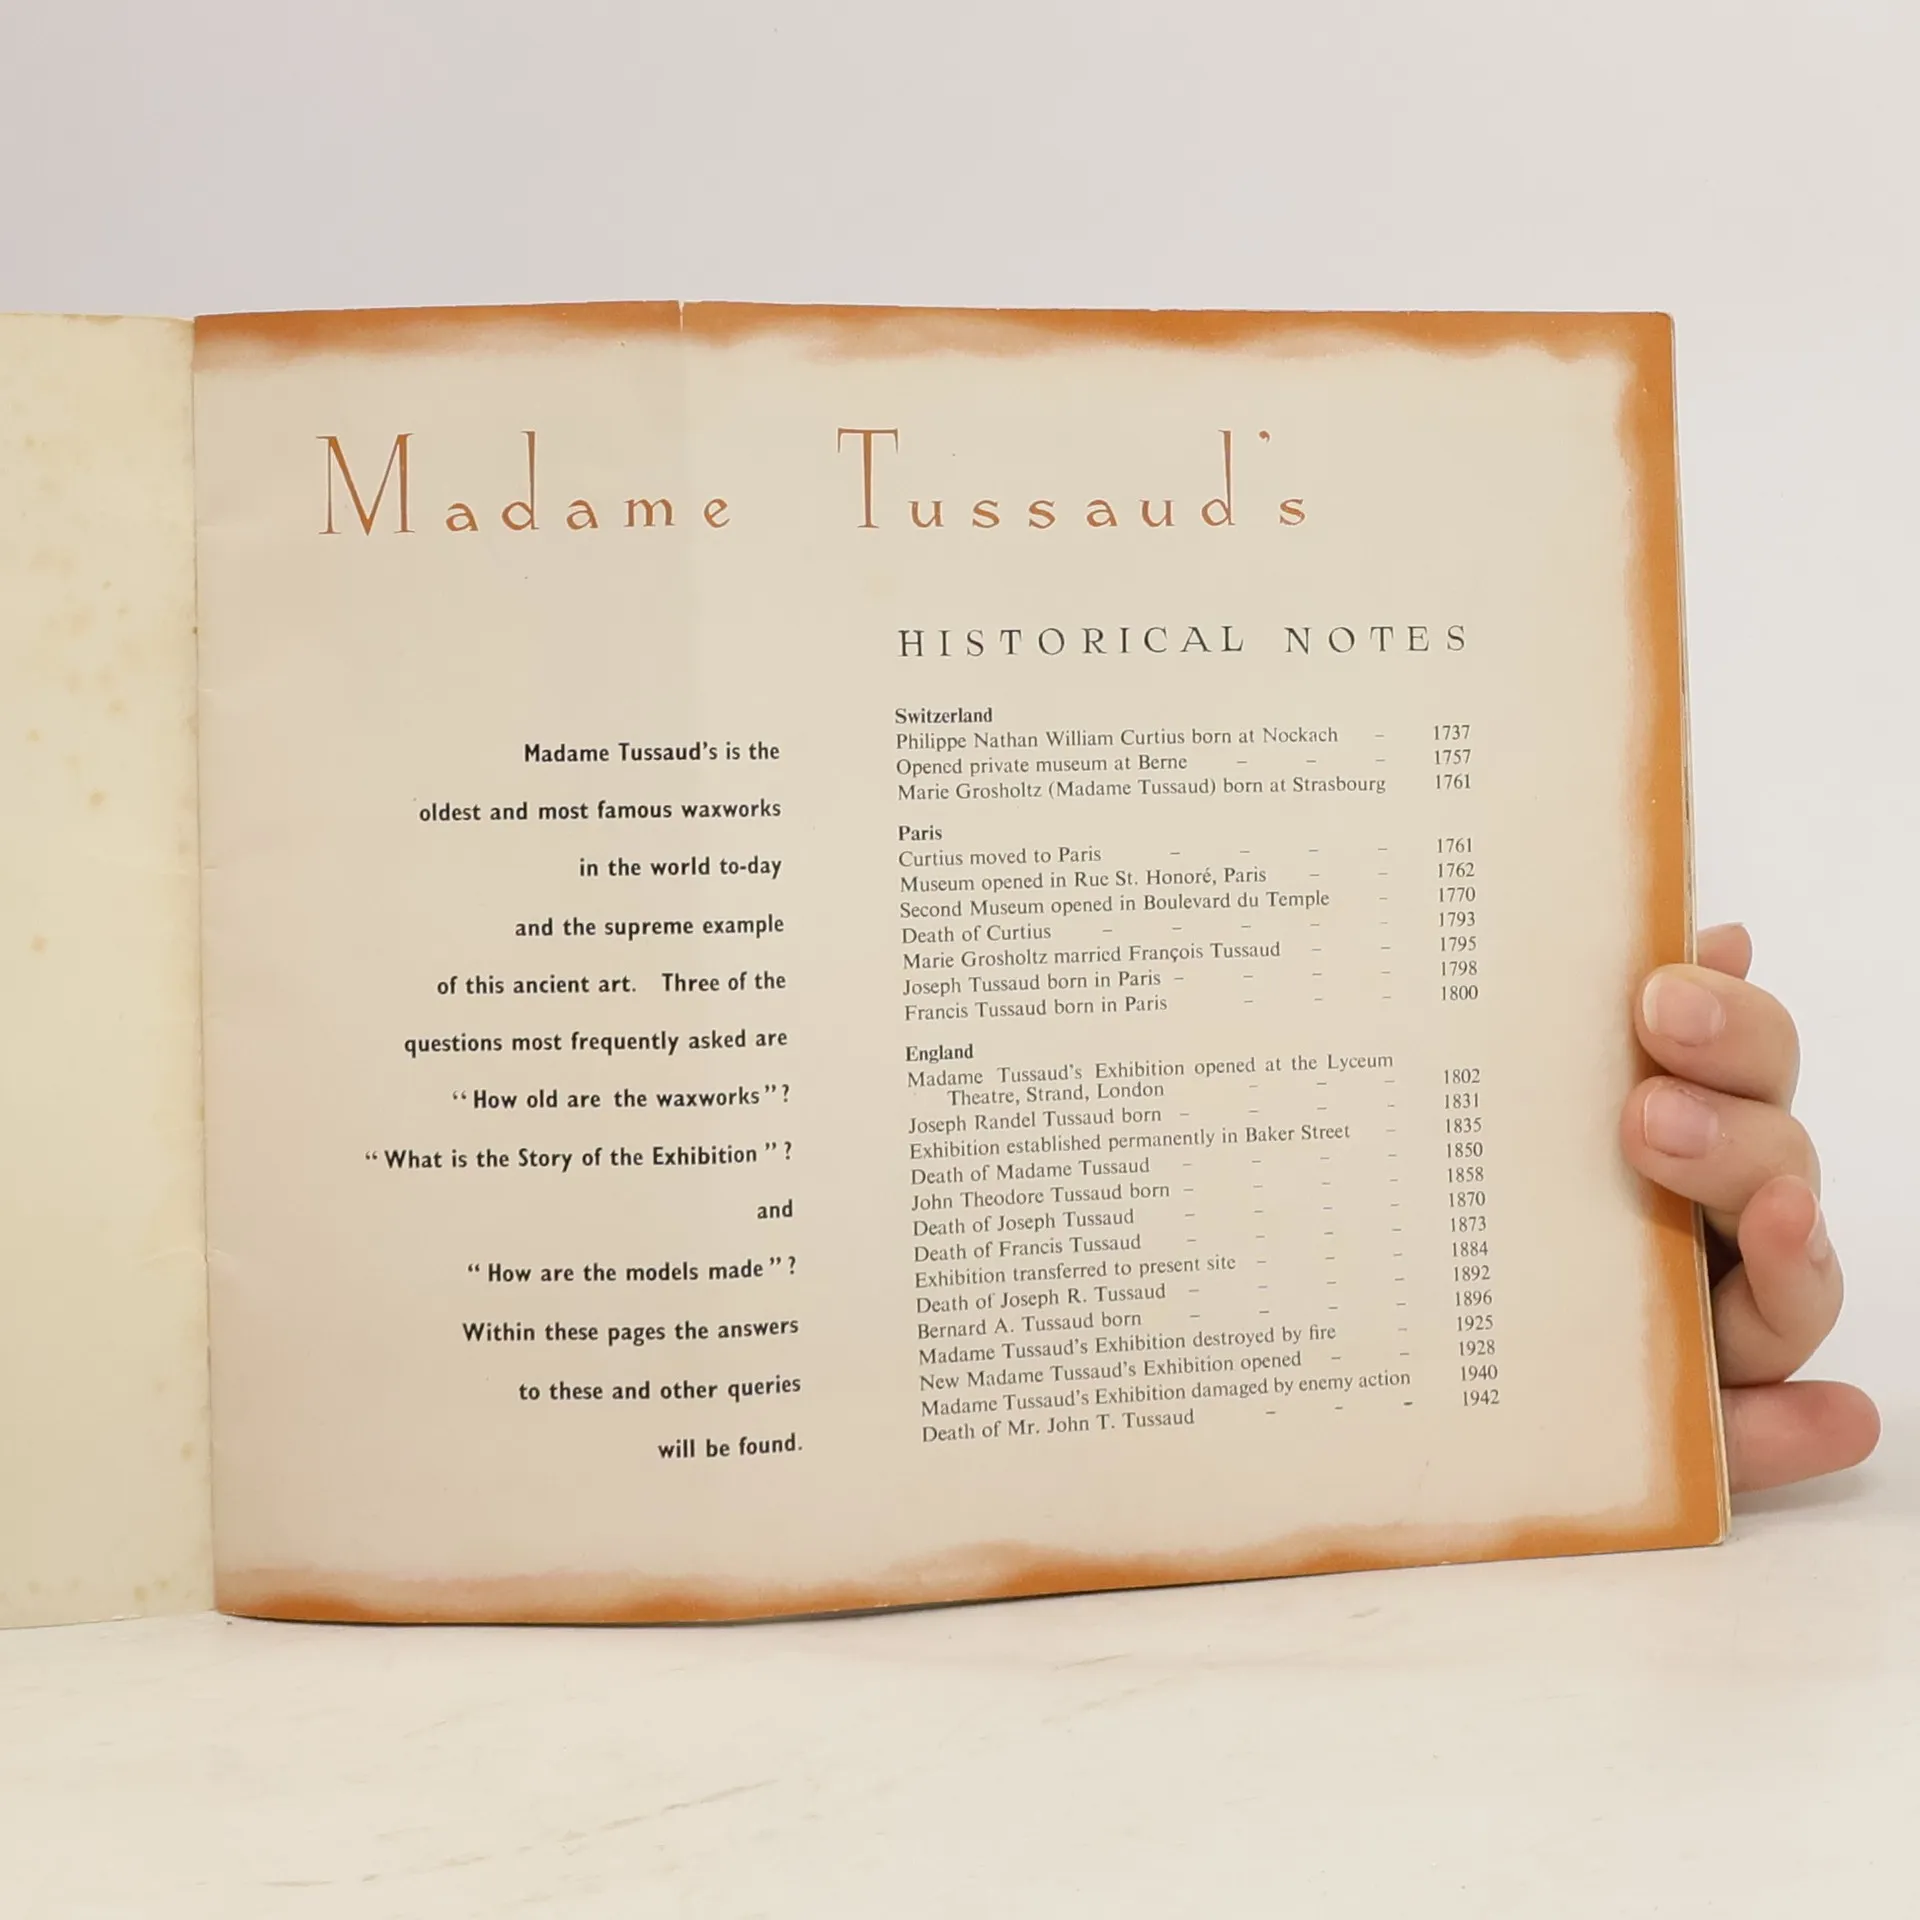 Madame Tussaud's
Madame Tussaud's is the
oldest and most famous waxworks
in the world to-day
and the supreme example
of this ancient art. Three of the
questions most frequently asked are
“ How old are the waxworks ” ?
“ What is the Story of the Exhibition ” ?
and
“ How are the models made ” ?
Within these pages the answers
to these and other queries
will be found.
HISTORICAL NOTES
Switzerland
Philippe Nathan William Curtius born at Nockach – 1737
Opened private museum at Berne – – – 1757
Marie Grosholtz (Madame Tussaud) born at Strasbourg 1761
Paris
Curtius moved to Paris – – – – 1761
Museum opened in Rue St. Honoré, Paris – – 1762
Second Museum opened in Boulevard du Temple – 1770
Death of Curtius – – – – – 1793
Marie Grosholtz married François Tussaud – – 1795
Joseph Tussaud born in Paris – – – – 1798
Francis Tussaud born in Paris – – – 1800
England
Madame Tussaud's Exhibition opened at the Lyceum
Theatre, Strand, London – – – 1802
Joseph Randel Tussaud born – – – – 1831
Exhibition established permanently in Baker Street – 1835
Death of Madame Tussaud – – – – 1850
John Theodore Tussaud born – – – – 1858
Death of Joseph Tussaud – – – – 1870
Death of Francis Tussaud – – – – 1873
Exhibition transferred to present site – – – 1884
Death of Joseph R. Tussaud – – – – 1892
Bernard A. Tussaud born – – – – 1896
Madame Tussaud's Exhibition destroyed by fire – 1925
New Madame Tussaud's Exhibition opened – – 1928
Madame Tussaud's Exhibition damaged by enemy action 1940
Death of Mr. John T. Tussaud – – – 1942